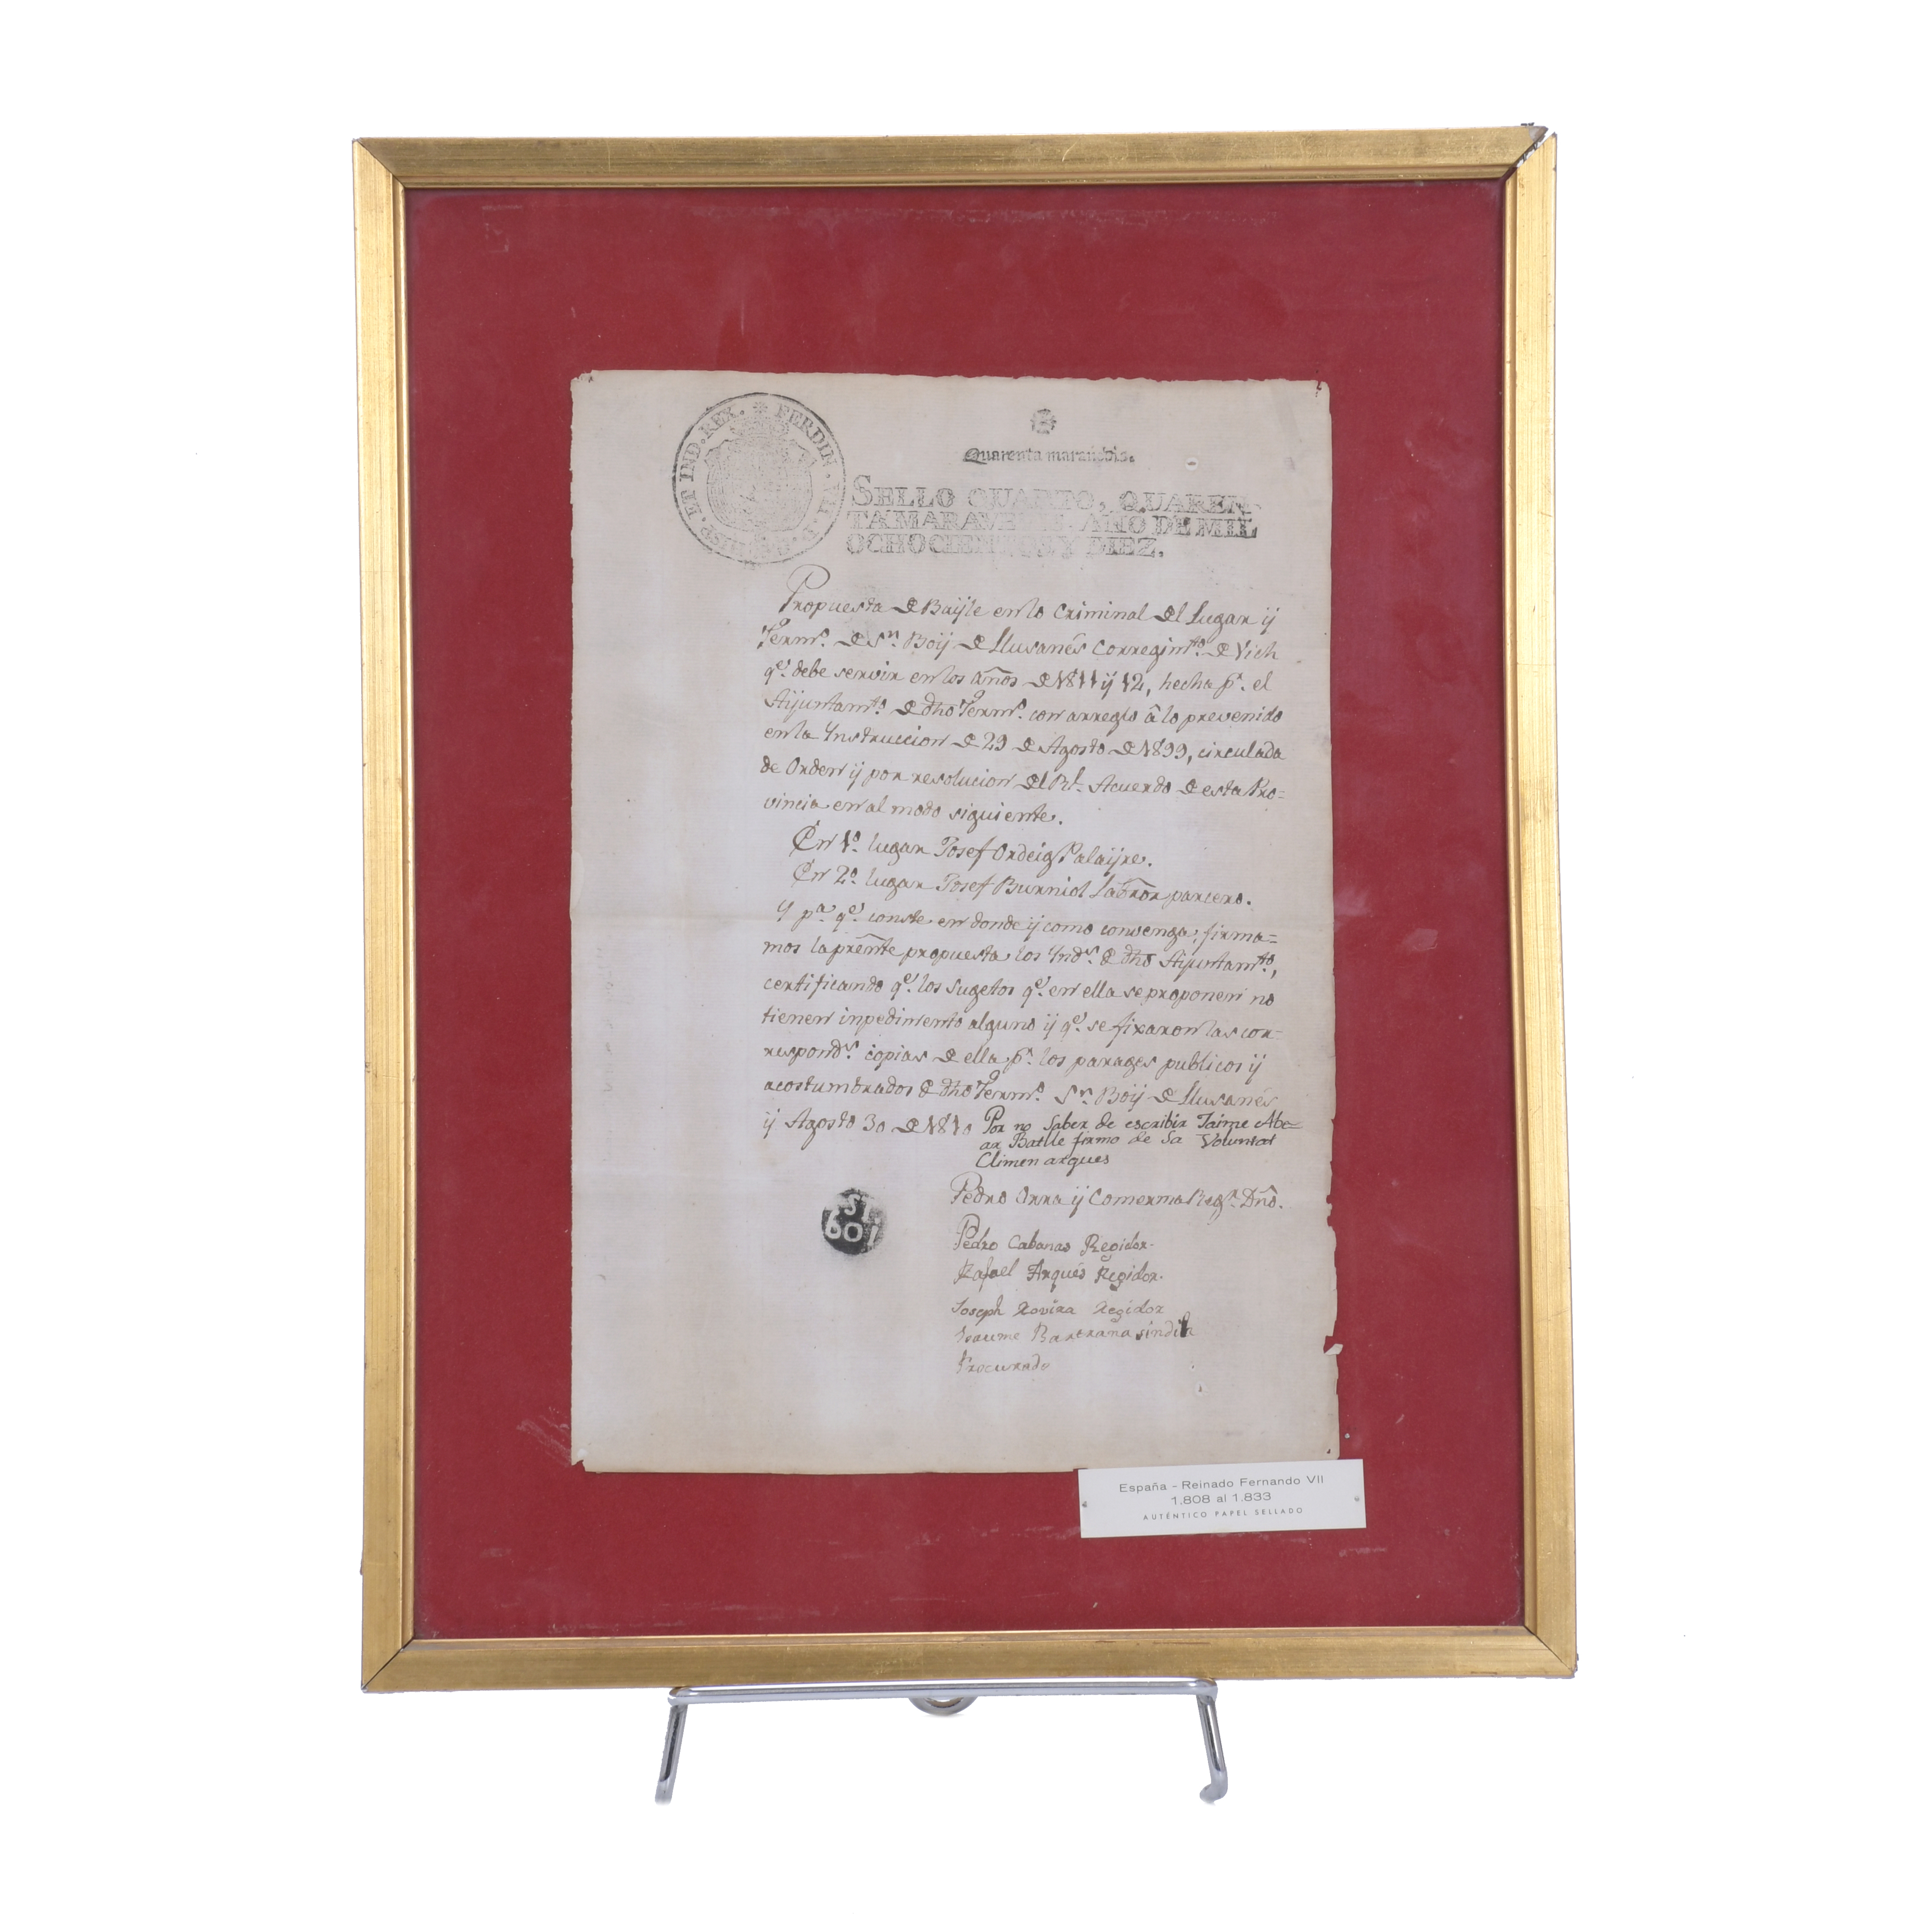 FERDIN. VII. D. G. HISP. ET IND. REX.
Quarenta maravedis.
SELLO QUARTO, QUAREN-
TA MARAVEDIS, AÑO DE MIL
OCHOCIENTOS Y DIEZ.
Propuesta de Bayle en lo Criminal del Lugar y
Termo. de Sn. Boy de Llusanés Corregimto. de Vich
qe. debe servir en los años de 1811 y 12, hecha pr. el
Ayuntamto. de dho Termo. con arreglo â lo prevenido
en la Ynstruccion de 29 de Agosto de 1899, circulada
de Orden y por resolucion del Rl. Acuerdo de esta Pro=
vincia en al modo siguiente.
En 1o. lugar Josef Ordeig Palayre.
En 2o. lugar Josef Burniol Labror parcero.
Y pa. qe. conste en donde y como convenga, firma=
mos la prente propuesta los Ynds. de dho Ayuntamto,
certificando qe. los Sugetos qe. en ella se proponen no
tienen inpedimento alguno y qe. se fixaron las cor-
respondS. copias de ella pr. los parages publicos y
acostumbrados de dho Termo. Sn. Boy de Llusanés
y Agosto 30 de 1810 Por no Saber de escribir Jaime Abe-
ar Batlle firmo de Sa Voluntat
Climen arques
Pedro Orra y Comerma Regr. Dno.
Pedro Cabanas Regidor
Rafael Arqués Regidor.
Joseph Rovira Regidor
Jaume Bartrana sindich
Procurado
ST
BOI
España - Reinado Fernando VII
1.808 al 1.833
AUTÉNTICO PAPEL SELLADO